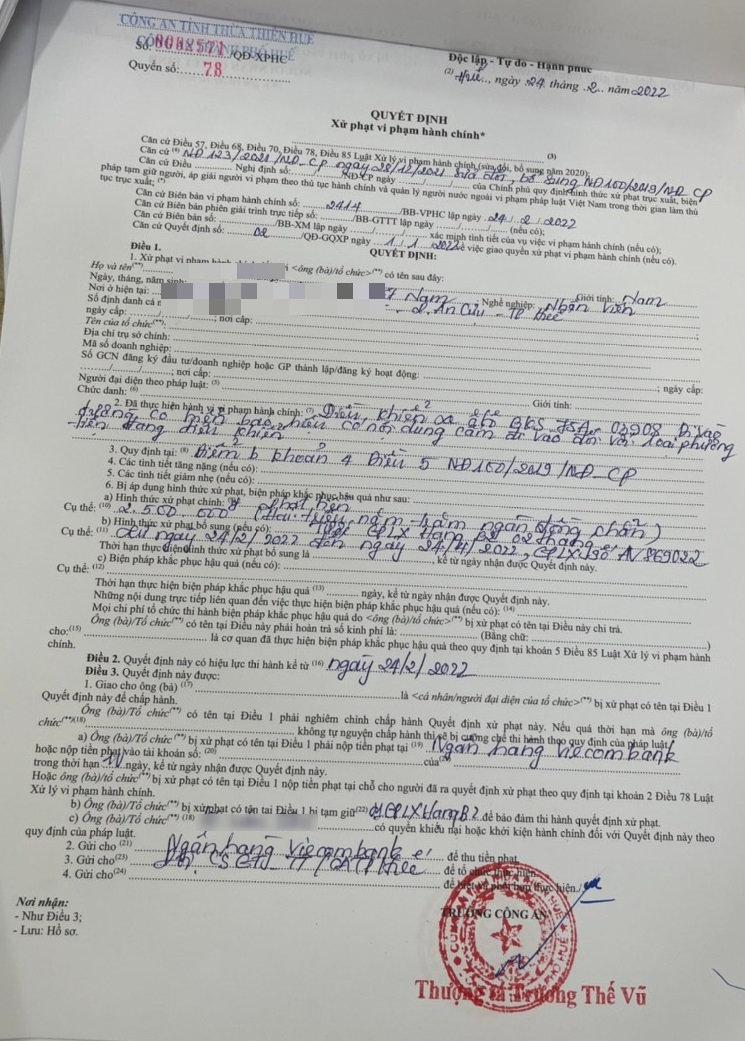 CÔNG AN TỈNH THỪA THIÊN HUẾ
CÔNG AN THÀNH PHỐ HUẾ
Số: 0082571/QĐ-XPHC
Quyển số: 78
Độc lập - Tự do - Hạnh phúc
(2) Huế, ngày 24 tháng 2 năm 2022
QUYẾT ĐỊNH
Xử phạt vi phạm hành chính*
(3)
Căn cứ Điều 57, Điều 68, Điều 70, Điều 78, Điều 85 Luật Xử lý vi phạm hành chính (sửa đổi, bổ sung năm 2020);
Căn cứ (4) NĐ 123/2021/NĐ-CP ngày 28/12/2021 sửa đổi, bổ sung NĐ100/2019/NĐ_CP
Căn cứ Điều ... Nghị định số: .../NĐCP ngày .../.../... của Chính phủ quy định hình thức xử phạt trục xuất, biện
pháp tạm giữ người, áp giải người vi phạm theo thủ tục hành chính và quản lý người nước ngoài vi phạm pháp luật Việt Nam trong thời gian làm thủ
tục trục xuất; (*)
Căn cứ Biên bản vi phạm hành chính số: 2414/BB-VPHC lập ngày 24/2/2022
Căn cứ Biên bản phiên giải trình trực tiếp số: .../BB-GTTT lập ngày .../.../... (nếu có);
Căn cứ Biên bản số: .../BB-XM lập ngày .../.../... xác minh tình tiết của vụ việc vi phạm hành chính (nếu có);
Căn cứ Quyết định số: 02/QĐ-GQXP ngày 1/1/2022 về việc giao quyền xử phạt vi phạm hành chính (nếu có).
QUYẾT ĐỊNH:
Điều 1.
1. Xử phạt vi phạm hành <ông (bà)/tổ chức>(**) có tên sau đây:
Họ và tên(**): Giới tính: Nam
Ngày, tháng, năm sinh: Nam Nghề nghiệp: Nhân viên
Nơi ở hiện tại: P. An Cựu - TP Huế
Số định danh cá n
ngày cấp: .../.../...; nơi cấp:
Tên của tổ chức(**):
Địa chỉ trụ sở chính:
Mã số doanh nghiệp:
Số GCN đăng ký đầu tư/doanh nghiệp hoặc GP thành lập/đăng ký hoạt động: ; ngày cấp:
.../.../...; nơi cấp:
Người đại diện theo pháp luật: (5) Giới tính:
Chức danh: (6)
2. Đã thực hiện hành vi vi phạm hành chính: (7) Điều khiển xe ôtô BKS 75A-03908 Đi vào
đường có biển báo hiệu có nội dung cấm đi vào đối với loại phương
tiện đang điều khiển
3. Quy định tại: (8) Điểm b khoản 4 Điều 5 NĐ100/2019/NĐ_CP
4. Các tình tiết tăng nặng (nếu có):
5. Các tình tiết giảm nhẹ (nếu có):
6. Bị áp dụng hình thức xử phạt, biện pháp khắc phục hậu quả như sau:
a) Hình thức xử phạt chính: (9) phạt tiền
Cụ thể: (10) 2.500.000đ (Hai triệu năm trăm ngàn đồng chẵn)
b) Hình thức xử phạt bổ sung (nếu có): GPLX Hạng B2 02 tháng
Cụ thể: (11) từ ngày 24/2/2022 đến ngày 24/4/2022, GPLX số AV869022
Thời hạn thực hiện hình thức xử phạt bổ sung là , kể từ ngày nhận được Quyết định này.
c) Biện pháp khắc phục hậu quả (nếu có):
Cụ thể: (12)
Thời hạn thực hiện biện pháp khắc phục hậu quả (13) ngày, kể từ ngày nhận được Quyết định này.
Những nội dung trực tiếp liên quan đến việc thực hiện biện pháp khắc phục hậu quả (nếu có): (14)
Mọi chi phí tổ chức thi hành biện pháp khắc phục hậu quả do <ông (bà)/tổ chức>(**) bị xử phạt có tên tại Điều này chi trả.
Ông (bà)/Tổ chức(**) có tên tại Điều này phải hoàn trả số kinh phí là: (Bằng chữ: )
cho:(15) là cơ quan đã thực hiện biện pháp khắc phục hậu quả theo quy định tại khoản 5 Điều 85 Luật Xử lý vi phạm hành
chính.
Điều 2. Quyết định này có hiệu lực thi hành kể từ (16) ngày 24/2/2022
Điều 3. Quyết định này được:
1. Giao cho ông (bà) (17) là <cá nhân/người đại diện của tổ chức>(**) bị xử phạt có tên tại Điều 1
Quyết định này để chấp hành.
Ông (bà)/Tổ chức(**) có tên tại Điều 1 phải nghiêm chỉnh chấp hành Quyết định xử phạt này. Nếu quá thời hạn mà ông (bà)/tổ
chức(**)(18) không tự nguyện chấp hành thì sẽ bị cưỡng chế thi hành theo quy định của pháp luật.
a) Ông (bà)/Tổ chức(**) bị xử phạt có tên tại Điều 1 phải nộp tiền phạt tại (19) Ngân hàng Viecombank
hoặc nộp tiền phạt vào tài khoản số: (20) của(21)
trong thời hạn 10 ngày, kể từ ngày nhận được Quyết định này.
Hoặc ông (bà)/tổ chức(**) bị xử phạt có tên tại Điều 1 nộp tiền phạt tại chỗ cho người đã ra quyết định xử phạt theo quy định tại khoản 2 Điều 78 Luật
Xử lý vi phạm hành chính.
b) Ông (bà)/Tổ chức(**) bị xử phạt có tên tại Điều 1 bị tạm giữ(22) GPLX Hạng B2 để bảo đảm thi hành quyết định xử phạt.
c) Ông (bà)/Tổ chức(**) (18) có quyền khiếu nại hoặc khởi kiện hành chính đối với Quyết định này theo
quy định của pháp luật.
2. Gửi cho (21) Ngân hàng Viecombank để thu tiền phạt.
3. Gửi cho(23) CSGT-TT CATP Huế để tổ chức thực hiện.
4. Gửi cho(24) để biết và phối hợp thực hiện./.
Nơi nhận:
- Như Điều 3;
- Lưu: Hồ sơ.
TRƯỞNG CÔNG AN
Thượng tá Trương Thế Vũ